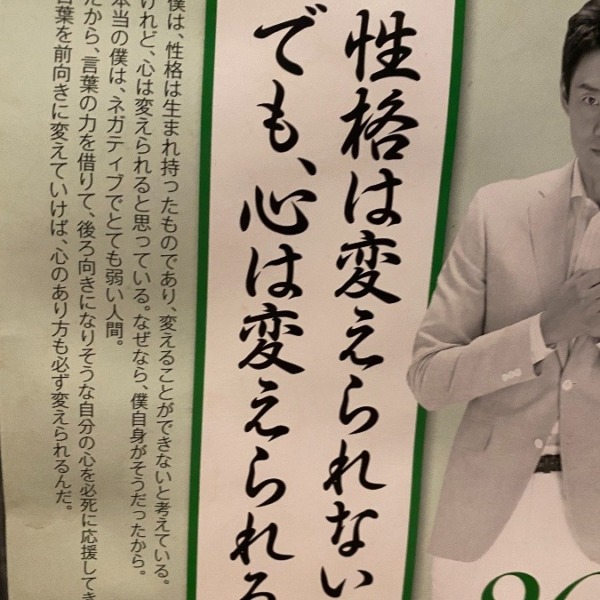 性格は変えられない
でも、心は変えられる
僕は、性格は生まれ持ったものであり、変えることができないと考えている。
けれど、心は変えられると思っている。なぜなら、僕自身がそうだったから。
本当の僕は、ネガティブでとても弱い人間。
だから、言葉の力を借りて、後ろ向きになりそうな自分の心を必死に応援してき
言葉を前向きに変えていけば、心のあり方も必ず変えられるんだ。